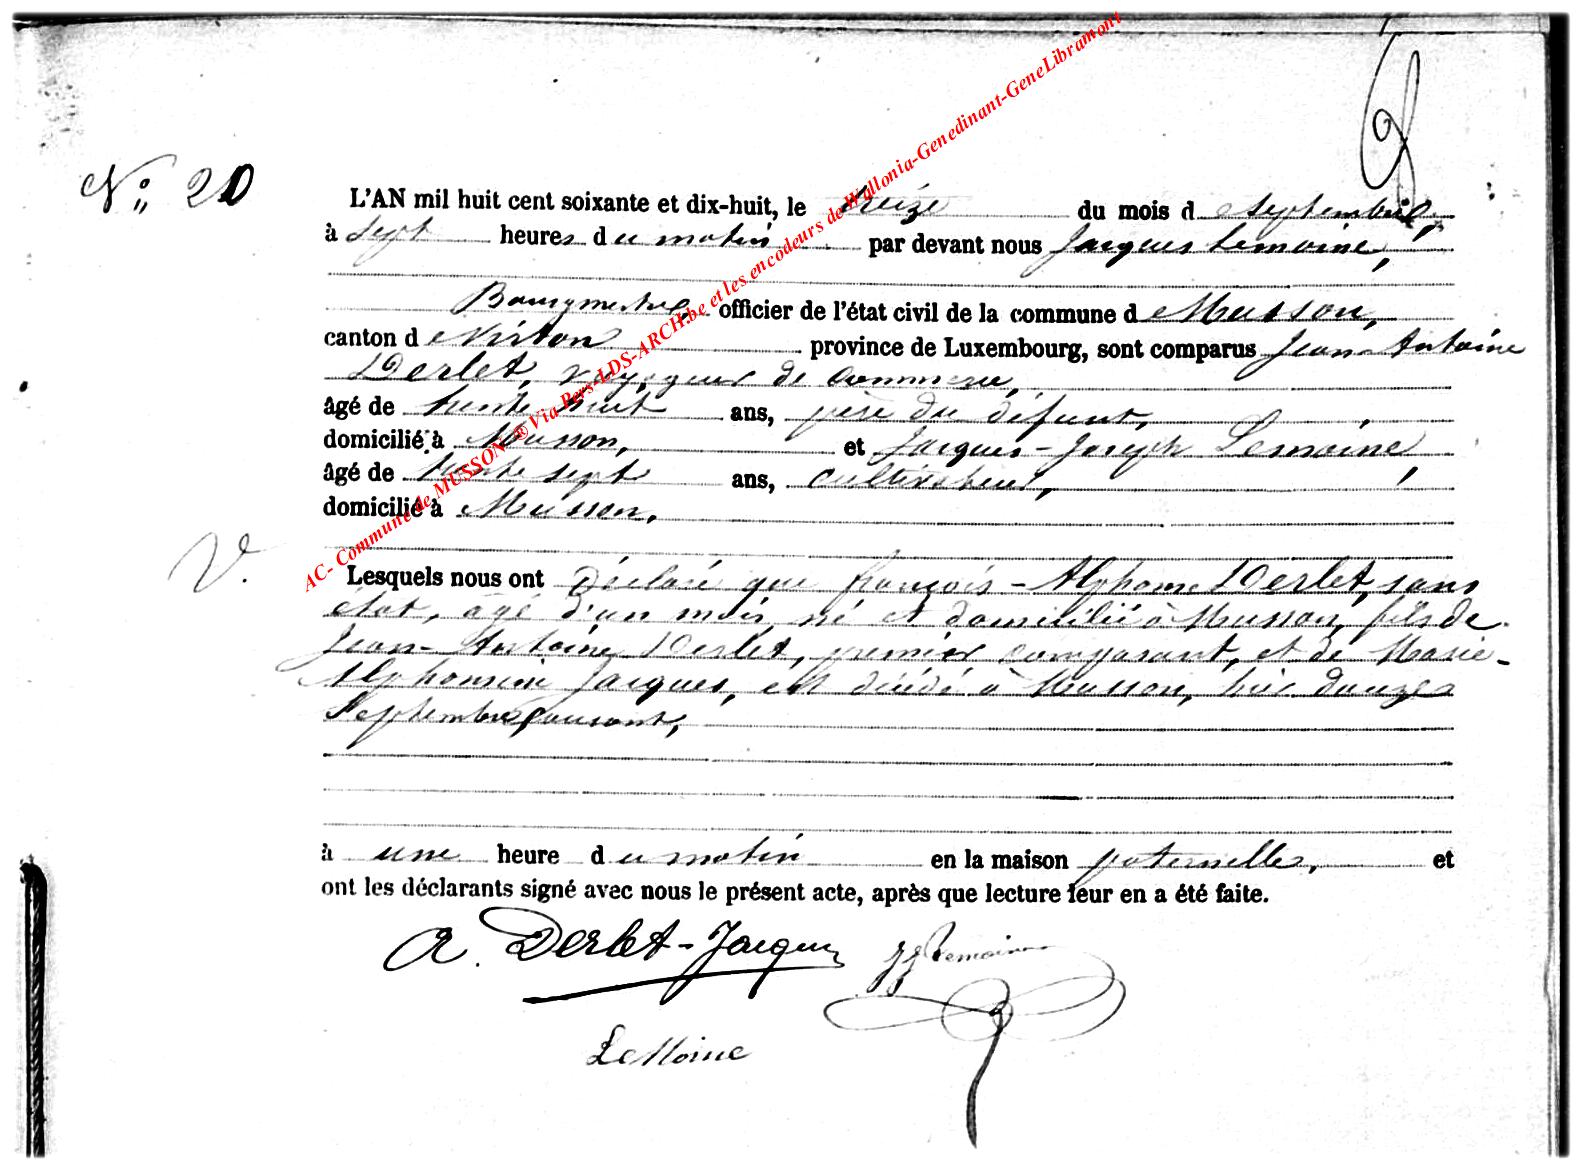 N° 20
L'AN mil huit cent soixante et dix-huit, le treize du mois d e Septembre,
à sept heures d u matin par devant nous Jacques Lemoine,
Bourgmestre, officier de l'état civil de la commune d e Musson,
canton d e Virton province de Luxembourg, sont comparus Jean-Antoine
Derlet, voyageur de commerce,
âgé de trente huit ans, père du défunt,
domicilié à Musson, et Jacques-Joseph Lemoine,
âgé de trente sept ans, cultivateur,
domicilié à Musson,
V.
Lesquels nous ont déclaré que françois-Alphonse Derlet, sans
état, âgé d'un mois, né et domicilié à Musson, fils de
Jean-Antoine Derlet, premier comparant, et de Marie-
Alphonsine Jacques, est décédé à Musson, hier douze
Septembre courant,
à une heure d u matin en la maison paternelle, et
ont les déclarants signé avec nous le présent acte, après que lecture leur en a été faite.
A. Derlet-Jacques JJ Lemoine
LeMoine
AC- Commune de MUSSON ® Via Pers-LDS-ARCH.be et les encodeurs de Wallonia-Genedinant-GeneLibramont